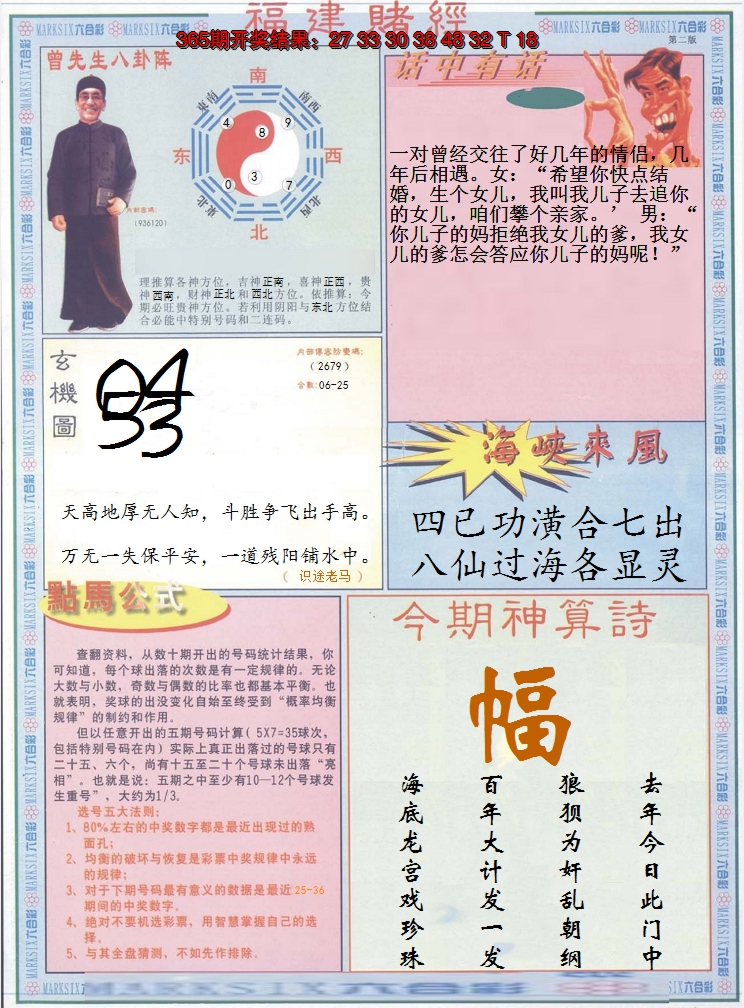 福建賭經
365期开奖结果：27 33 30 38 48 32 T 18
MARKSIX六合彩
第二版
曾先生八卦阵
南
东南
西南
4
9
8
东
西
3
0
7
东北
西北
北
内部密碼：
（936120）
理推算各神方位，吉神正南，喜神正西，贵
神西南，财神正北和西北方位。依推算：今
期必旺贵神方位。若利用阴阳与东北方位结
合必能中特别号码和二连码。
话中有话
一对曾经交往了好几年的情侣，几
年后相遇。女：“希望你快点结
婚，生个女儿，我叫我儿子去追你
的女儿，咱们攀个亲家。’ 男：“
你儿子的妈拒绝我女儿的爹，我女
儿的爹怎会答应你儿子的妈呢！”
玄機圖
04
53
（2679）
合数:06-25
天高地厚无人知，斗胜争飞出手高。
万无一失保平安，一道残阳铺水中。
（ 识途老马 ）
海峽來風
四已功潢合七出
八仙过海各显灵
點馬公式
查翻资料，从数十期开出的号码统计结果，你
可知道，每个球出落的次数是有一定规律的。无论
大数与小数，奇数与偶数的比率也都基本平衡。也
就表明，奖球的出没变化自始至终受到“概率均衡
规律”的制约和作用。
但以任意开出的五期号码计算( 5X7=35球次，
包括特别号码在内）实际上真正出落过的号球只有
二十五、六个，尚有十五至二十个号球未出落“亮
相”。也就是说：五期之中至少有10—12个号球发
生重号”，大约为1/3。
选号五大法则：
1、80%左右的中奖数字都是最近出现过的熟
面孔；
2、均衡的破坏与恢复是彩票中奖规律中永远
的规律；
3、对于下期号码最有意义的数据是最近25-36
期间的中奖数字。
4、绝对不要机选彩票，用智慧掌握自己的选
择。
5、与其全盘猜测，不如先作排除。
今期神算詩
幅
去年今日此门中
狼狈为奸乱朝纲
百年大计发一发
海底龙宫戏珍珠